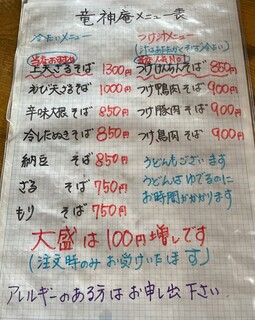 竜神庵メニュー表
冷たいメニュー
当店おすすめ
上天ざるそば 1300円
えび天ざるそば 1000円
辛味大根そば 850円
冷したぬきそば 850円
納豆そば 850円
ざるそば 750円
もりそば 750円
つけ汁メニュー
当店人気No1
つけけんちんそば 850円
つけ鴨肉そば 900円
つけ豚肉そば 900円
つけ鳥肉そば 900円
うどんもございます
うどんはゆでるのに
お時間がかかります
大盛は100円増しです
(注文時のみお受けいたします)
アレルギーのある方はお申し出下さい